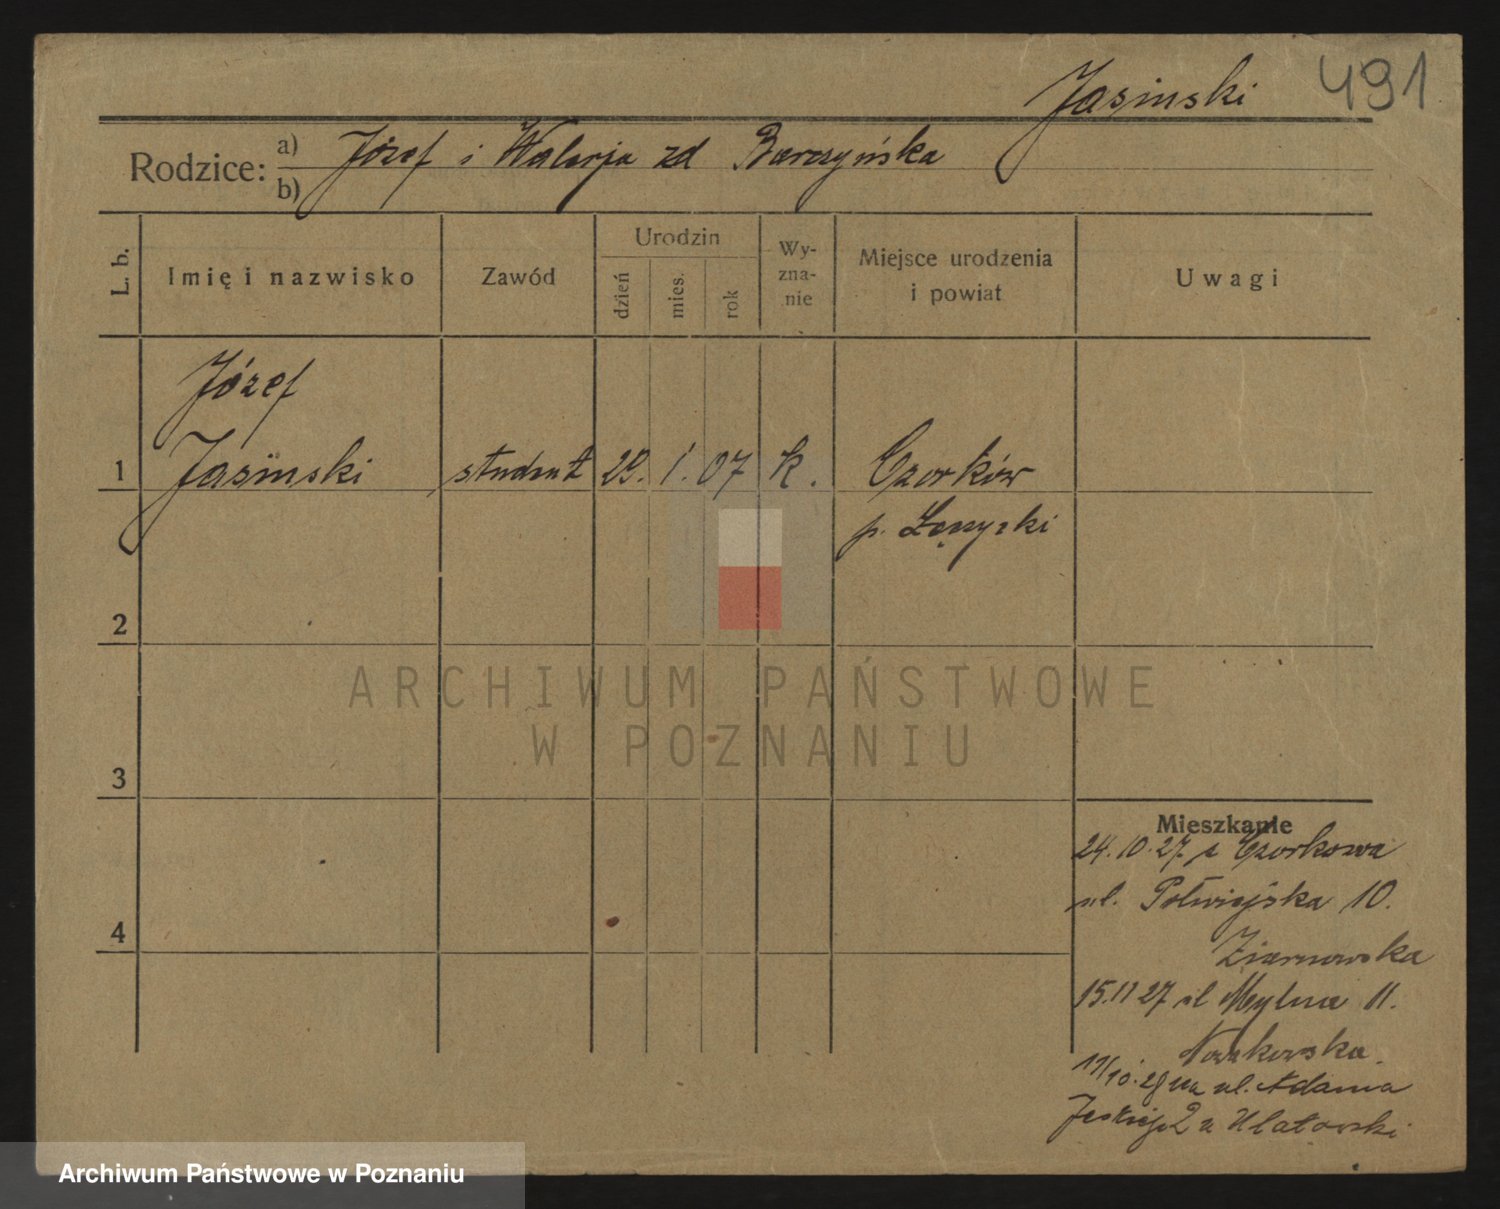 Jasinski 491
Rodzice: a) Józef i Walerja zd Barczyńska
b)
L. b. Imię i nazwisko Zawód Urodzin dzień mies. rok Wyznanie Miejsce urodzenia i powiat Uwagi
Józef
1 Jasinski student 29. 1. 07 k. Czorków
p. Łęczycki
2
ARCHIWUM PAŃSTWOWE
W POZNANIU
3
Mieszkanie
24.10.27 z Czorkowa
ul. Półwiejska 10.
4
Ziarnowska
15.11 27 ul Mylna 11.
Nowakowska.
11/10. 28 na ul. Adama
Jeskiego 2 u Ulatowski
Archiwum Państwowe w Poznaniu